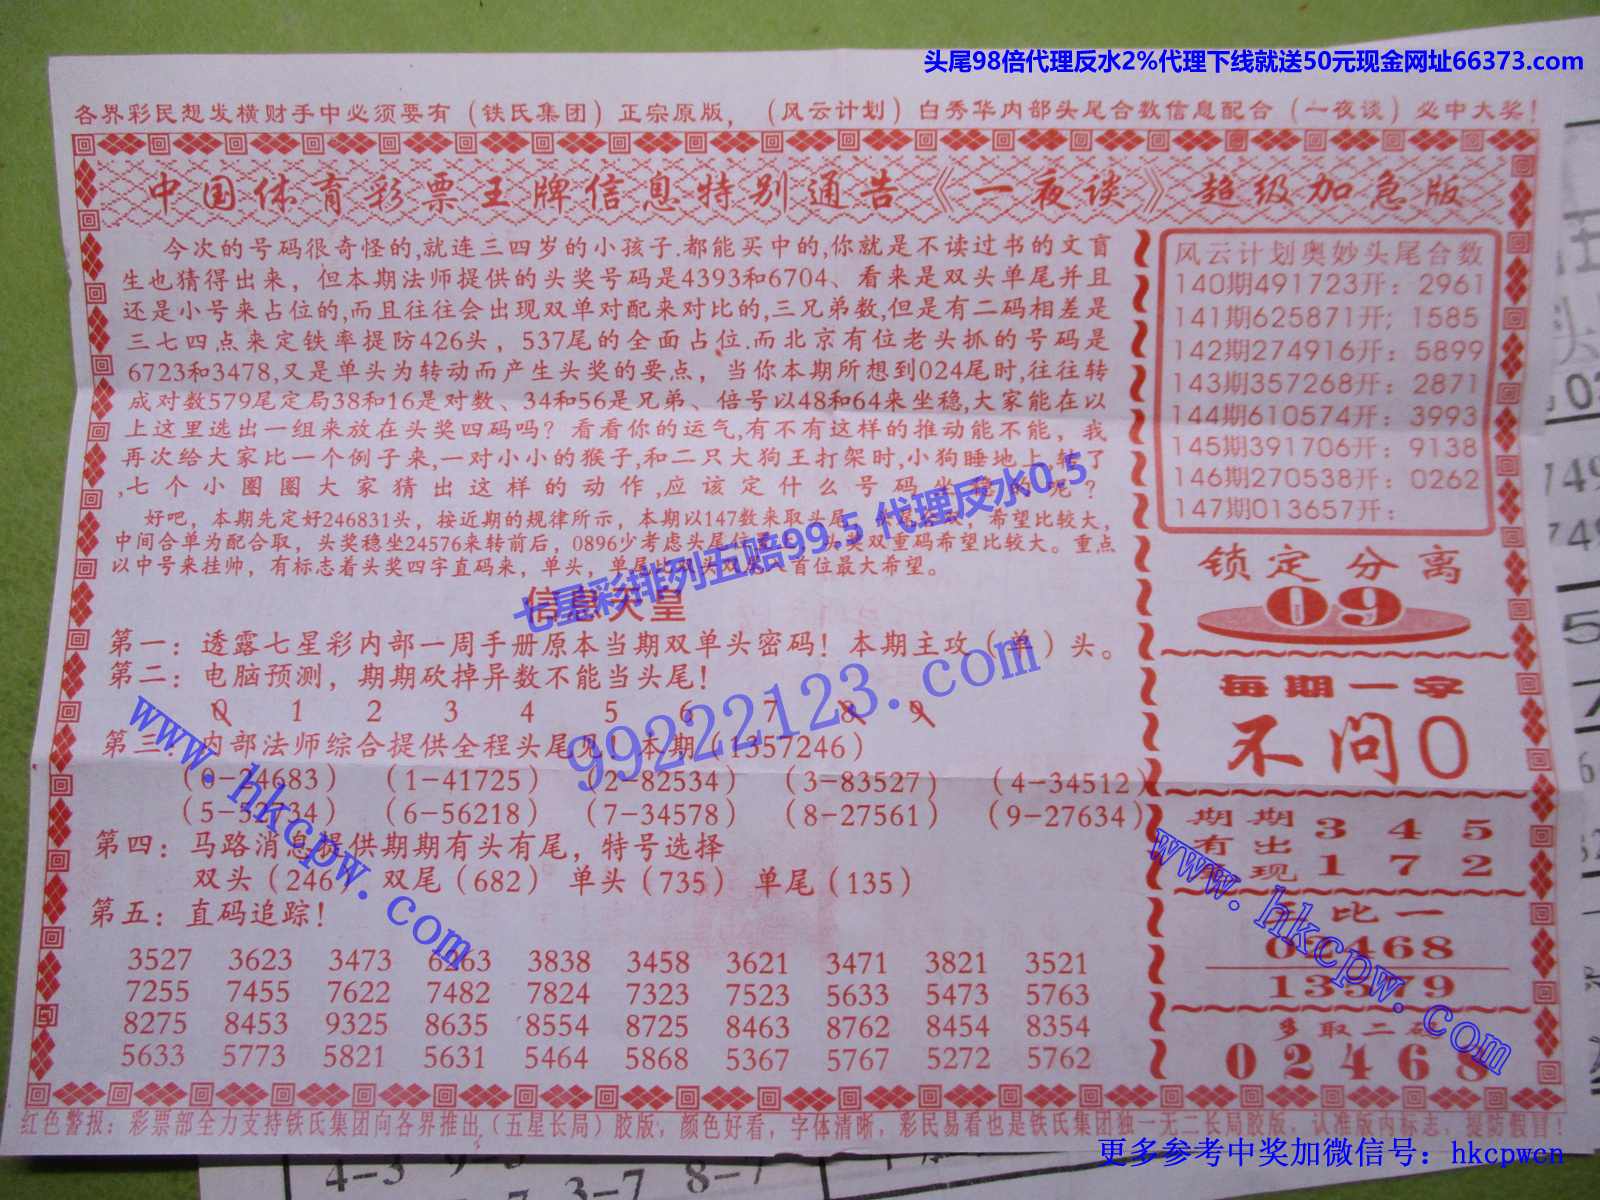 头尾98倍代理反水2%代理下线就送50元现金网址66373.com
各界彩民想发横财手中必须要有（铁氏集团）正宗原版，（风云计划）白秀华内部头尾合数信息配合（一夜谈）必中大奖！
中国体育彩票王牌信息特别通告《一夜谈》超级加急版
今次的号码很奇怪的,就连三四岁的小孩子.都能买中的,你就是不读过书的文盲
生也猜得出来，但本期法师提供的头奖号码是4393和6704、看来是双头单尾并且
还是小号来占位的,而且往往会出现双单对配来对比的,三兄弟数,但是有二码相差是
三七四点来定铁率提防426头，537尾的全面占位.而北京有位老头抓的号码是
6723和3478,又是单头为转动而产生头奖的要点，当你本期所想到024尾时,往往转
成对数579尾定局38和16是对数、34和56是兄弟、倍号以48和64来坐稳,大家能在以
上这里选出一组来放在头奖四码吗？看看你的运气,有不有这样的推动能不能，我
再次给大家比一个例子来,一对小小的猴子,和二只大狗王打架时,小狗睡地上,转了
,七个小圈圈大家猜出这样的动作,应该定什么号码坐稳的呢？
好吧，本期先定好246831头，按近期的规律所示，本期以147数来取头尾，希望比较大，
中间合单为配合取，头奖稳坐24576来转前后，0896少考虑头尾位 头奖双重码希望比较大。重点
以中号来挂帅，有标志着头奖四字直码来，单头，单尾比双头双尾 首位最大希望。
七星彩排列五赔99.5 代理反水0.5
信息天皇
第一：透露七星彩内部一周手册原本当期双单头密码！本期主攻（单）头。
第二：电脑预测，期期砍掉异数不能当头尾！
0 1 2 3 4 5 6 7 8 9
第三：内部法师综合提供全程头尾见！本期（1357246）
（0-24683）（1-41725）（2-82534）（3-83527）（4-34512）
（5-52734）（6-56218）（7-34578）（8-27561）（9-27634）
第四：马路消息提供期期有头有尾，特号选择
双头（246）双尾（682）单头（735）单尾（135）
第五：直码追踪！
3527 3623 3473 6263 3838 3458 3621 3471 3821 3521
7255 7455 7622 7482 7824 7323 7523 5633 5473 5763
8275 8453 9325 8635 8554 8725 8463 8762 8454 8354
5633 5773 5821 5631 5464 5868 5367 5767 5272 5762
风云计划奥妙头尾合数
140期491723开：2961
141期625871开；1585
142期274916开：5899
143期357268开：2871
144期610574开：3993
145期391706开：9138
146期270538开：0262
147期013657开：
锁定分离
09
每期一字
不问0
期期 3 4 5
有出
现 1 7 2
比一
02468
13579
多取二码
02468
99222123.com
www.hkcpw.com
www.hkcpw.com
红色警报：彩票部全力支持铁氏集团向各界推出（五星长局）胶版，颜色好看，字体清晰，彩民易看也是铁氏集团独一无二长局胶版，认准版内标志，提防假冒！
更多参考中奖加微信号：hkcpwcn
4-3
3-7 8-7